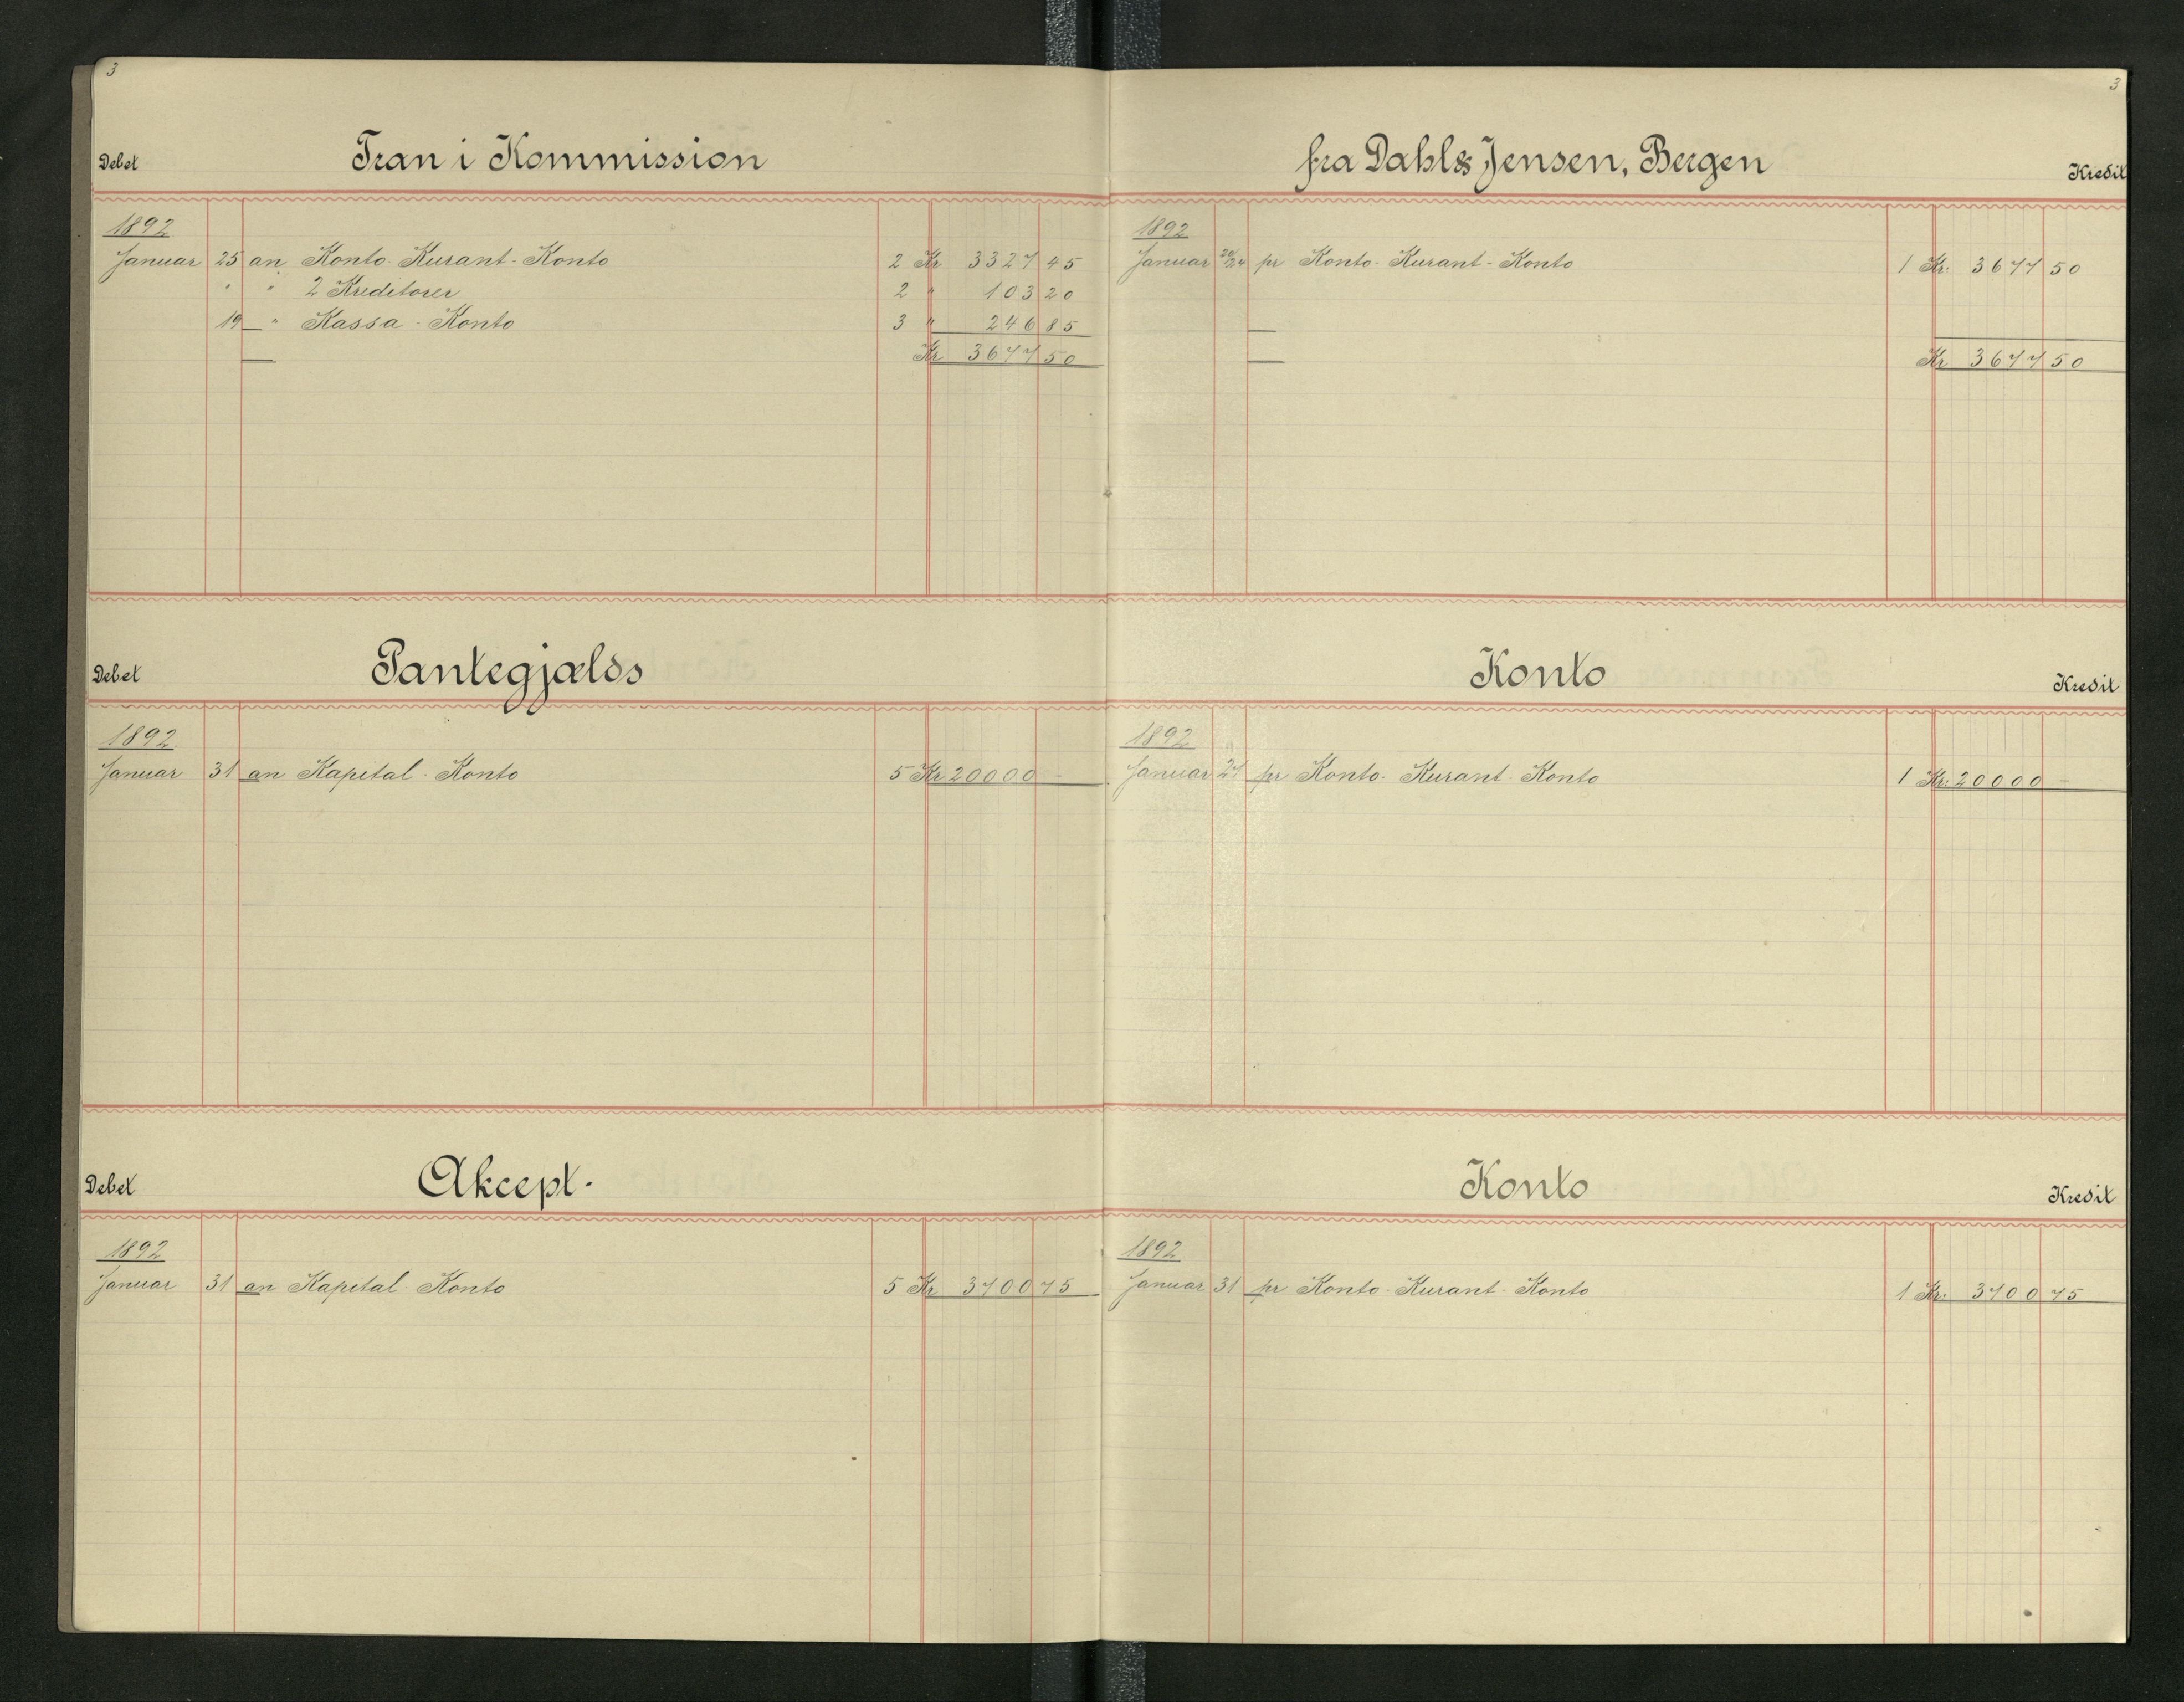 3
Debet Tran i Kommission
1892
Januar 25 an Konto-Kurant-Konto 2 Kr 3327 45
" " 2 Kreditorer 2 " 103 20
19 " Kassa-Konto 3 " 246 85
Kr 3677 50
Debet Pantegjælds
1892
Januar 31 an Kapital-Konto 5 Kr 20000 -
Debet Akcept-
1892
Januar 31 an Kapital-Konto 5 Kr 3700 75
3
fra Dahl & Jensen, Bergen Kredit
1892
Januar 20/24 pr Konto-Kurant-Konto 1 Kr. 3677 50
Kr 3677 50
Konto Kredit
1892
Januar 27 pr Konto-Kurant-Konto 1 Kr. 20000 -
Konto Kredit
1892
Januar 31 pr Konto-Kurant-Konto 1 Kr. 3700 75